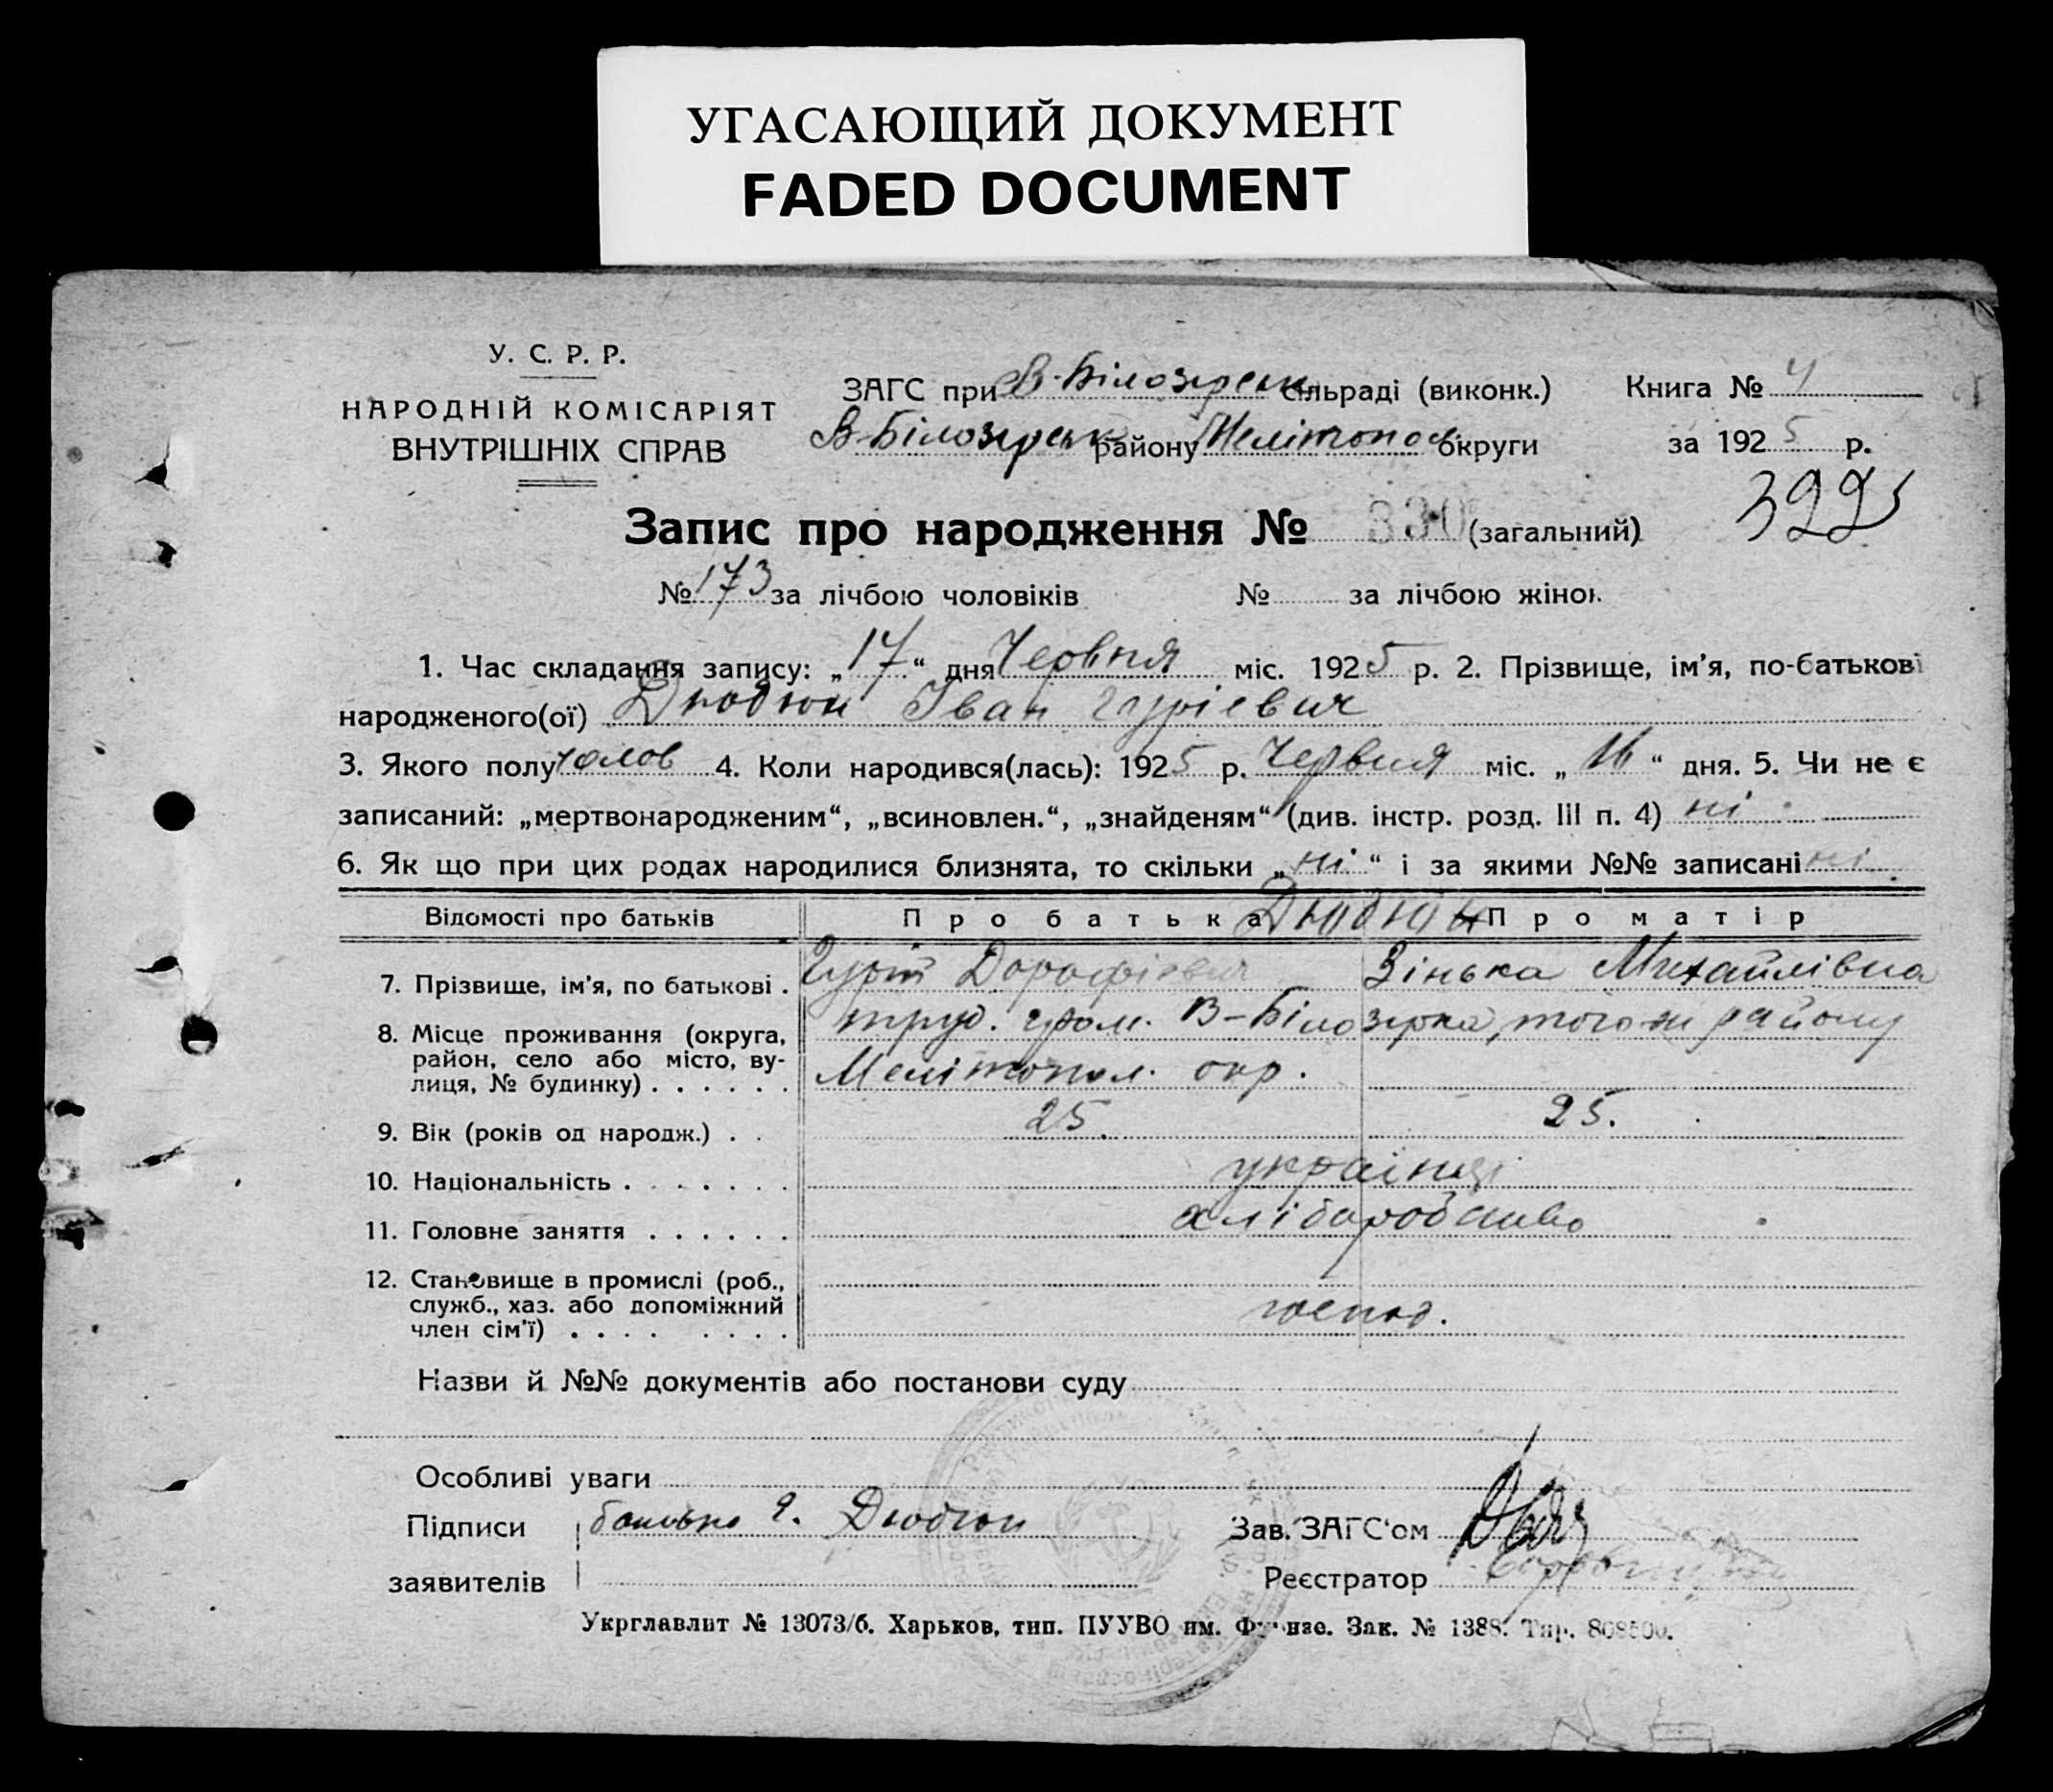 УГАСАЮЩИЙ ДОКУМЕНТ
FADED DOCUMENT
У. С. Р. Р.
НАРОДНІЙ КОМІСАРІЯТ
ВНУТРІШНІХ СПРАВ
ЗАГС при В-Білозерськ сільраді (виконк.) Книга № 4
В-Білозерськ району Мелітопол округи за 1925 р.
Запис про народження № 330 (загальний)
№ 173 за лічбою чоловіків № за лічбою жінок
1. Час складання запису: „17“ дня Червня міс. 1925 р. 2. Прізвище, ім’я, по-батькові
народженого(ої) Дюдюн Іван Гурієвич
3. Якого полу чолов 4. Коли народився(лась): 1925 р. Червня міс. „16“ дня. 5. Чи не є
записаний: „мертвонародженим“, „всиновлен.“, „знайденям“ (див. інстр. розд. III п. 4) ні
6. Як що при цих родах народилися близнята, то скільки „ні“ і за якими №№ записані ні
Відомості про батьків Про батька Дюдюн Про матір
7. Прізвище, ім’я, по батькові . Гурій Дорофієвич Зінька Михайлівна
8. Місце проживання (округа, район, село або місто, вулиця, № будинку) . . . . . . труд. гром. В-Білозірка, того ж району
Мелітопол. окр.
9. Вік (років од народж.) . . 25. 25.
10. Національність . . . . . . . українці
11. Головне заняття . . . . . . хліборобство
12. Становище в промислі (роб.,
служб., хаз. або допоміжний
член сім’ї) . . . . . . . . господ.
Назви й №№ документів або постанови суду
Особливі уваги
Підписи батько Г. Дюдюн Зав. ЗАГС‘ом
заявителів Реєстратор
Укрглавлит № 13073/б. Харьков, тип. ПУУВО им. Фрунзе. Зак. № 1388. Тир. 808500.